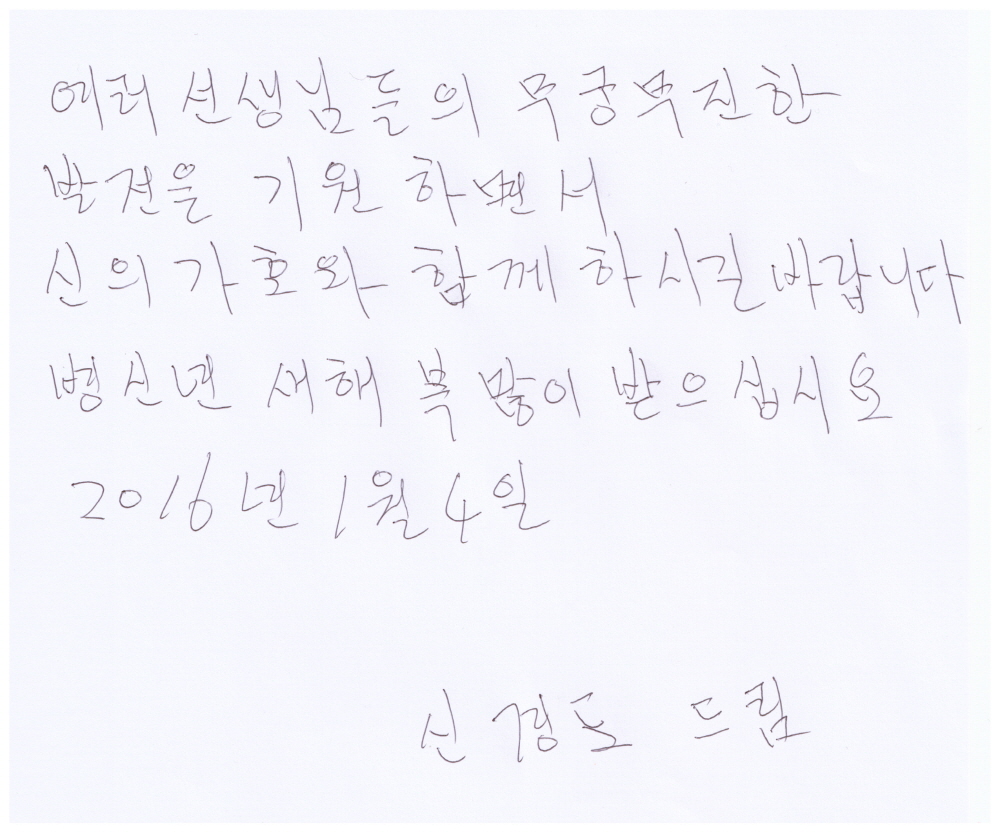 여러 선생님들의 무궁부진한
발전을 기원 하면서
신의 가호와 함께 하시길 바랍니다
병신년 새해 복 많이 받으십시요
2016년 1월 4일
신경도 드림